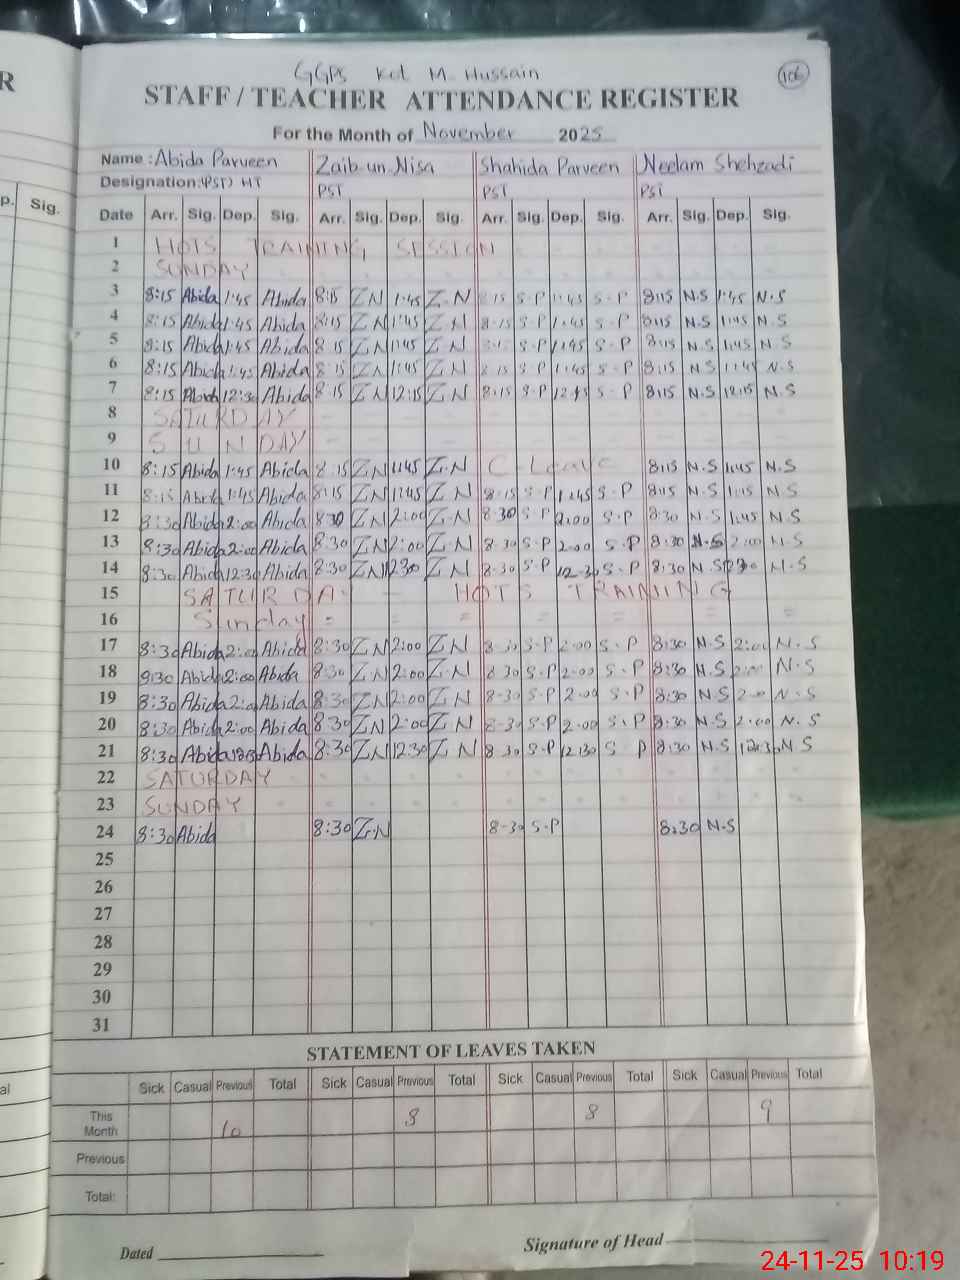 R
GGPS Kot M. Hussain
106
STAFF / TEACHER ATTENDANCE REGISTER
For the Month of November 2025
Name : Abida Parveen Zaib un Nisa Shahida Parveen Neelam Shehzadi
Designation: (PST) HT PST PST PST
p. Sig.
Date Arr. Sig. Dep. Sig. Arr. Sig. Dep. Sig. Arr. Sig. Dep. Sig. Arr. Sig. Dep. Sig.
1 HOTS TRAINING SESSION
2 SUNDAY
3 8:15 Abida 1:45 Abida 8:15 Z N 1:45 Z.N 8:15 S.P 1:45 S.P 8:15 N.S 1:45 N.S
4 8:15 Abida 1:45 Abida 8:15 Z N 1:45 Z N 8-15 S.P 1:45 S.P 8:15 N.S 1:45 N.S
5 8:15 Abida 1:45 Abida 8:15 Z N 1:45 Z N 8:15 S.P 1:45 S.P 8:15 N.S 1:45 N.S
6 8:15 Abida 1:45 Abida 8:15 Z N 1:45 Z N 8:15 S.P 1:45 S.P 8:15 N.S 1:45 N.S
7 8:15 Abida 12:30 Abida 8:15 Z N 12:15 Z N 8:15 S.P S.P 8:15 N.S 12:15 N.S
8 SATURDAY
9 SUNDAY
10 8:15 Abida 1:45 Abida 8:15 Z N 1:45 Z.N C-Leave 8:15 N.S 1:45 N.S
11 8:15 Abida 1:45 Abida 8:15 Z N 1:45 Z N 8-15 S-P 1:45 S-P 8:15 N.S 1:15 N.S
12 8:30 Abida 2:00 Abida 8:30 Z N 2:00 Z N 8-30 S-P 2:00 S-P 8:30 N.S 1:45 N.S
13 8:30 Abida 2:00 Abida 8:30 Z N 2:00 Z N 8-30 S-P 2-00 S.P 8:30 N.S 2:00 N.S
14 8:30 Abida 12:30 Abida 8:30 Z N 12:30 Z N 8-30 S-P 12-30 S-P 8:30 N.S N.S
15 SATURDAY - HOTS TRAINING
16 Sunday = = = = = = =
17 8:30 Abida 2:00 Abida 8:30 Z N 2:00 Z N 8-30 S-P 2:00 S-P 8:30 N.S 2:00 N.S
18 8:30 Abida 2:00 Abida 8:30 Z N 2:00 Z N 8-30 S-P 2-00 S-P 8:30 N.S 2:00 N.S
19 8:30 Abida 2:00 Abida 8:30 Z N 2:00 Z N 8-30 S-P 2-00 S-P 8:30 N.S 2:00 N.S
20 8:30 Abida 2:00 Abida 8:30 Z N 2:00 Z N 8-30 S-P 2-00 S.P 8:30 N.S 2:00 N.S
21 8:30 Abida Abida 8:30 Z N 12:30 Z N 8-30 S-P 12:30 S P 8:30 N.S 12:30 N S
22 SATURDAY
23 SUNDAY
24 8:30 Abida 8:30 Z.N 8-30 S-P 8:30 N.S
25
26
27
28
29
30
31
STATEMENT OF LEAVES TAKEN
Sick Casual Previous Total Sick Casual Previous Total Sick Casual Previous Total Sick Casual Previous Total
This Month 10 8 8 9
Previous
Total:
al
Dated
Signature of Head
24-11-25 10:19